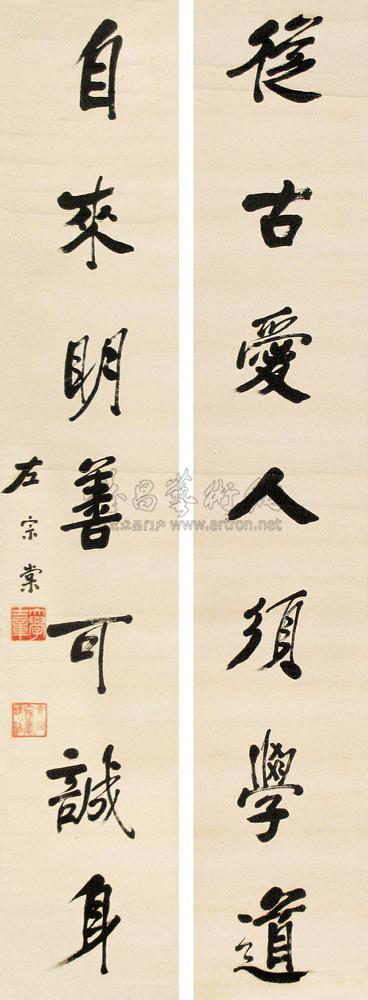 從古愛人須學道
自來明善可誠身
左宗棠
雅昌藝術网
www.artron.net